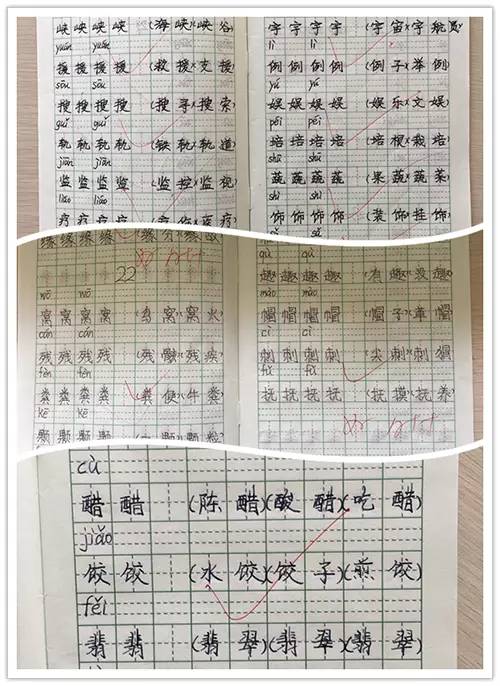 峡 峡 峡 峡 (海峡)(峡谷)
yuán yuán
援 援 援 援 (救援)(支援)
sōu sōu
搜 搜 搜 搜 (搜寻)(搜索)
guǐ guǐ
轨 轨 轨 轨 (铁轨)(轨道)
jiān jiān
监 监 监 监 (监控)(监视)
liáo liáo
疗 疗 疗 疗
宇 宇 宇 宇 (宇宙)(宇航员)
lì lì
例 例 例 例 (例子)(举例)
yú yú
娱 娱 娱 娱 (娱乐)(文娱)
péi péi
培 培 培 培 (培根)(栽培)
shū shū
蔬 蔬 蔬 蔬 (果蔬)(蔬菜)
shì shì
饰 饰 饰 饰 (装饰)(挂饰)
22
wō wō
窝 窝 窝 (鸟窝)(窝火)
cán cán
残 残 残 (残骸)(残疾)
fèn fèn
粪 粪 粪 (粪便)(牛粪)
kē kē
颗 颗 颗
qù qù
趣 趣 趣 (有趣)(没趣)
mào mào
帽 帽 帽 帽 (帽子)(草帽)
cì cì
刺 刺 刺 刺 (尖刺)(刺猬)
fǔ fǔ
抚 抚 抚 抚 (抚摸)(抚养)
cù
醋 醋 (陈醋)(酸醋)(吃醋)
jiǎo
饺 饺 (水饺)(饺子)(煎饺)
fěi
翡 翡 (翡翠)(翡翠)(翡翠)